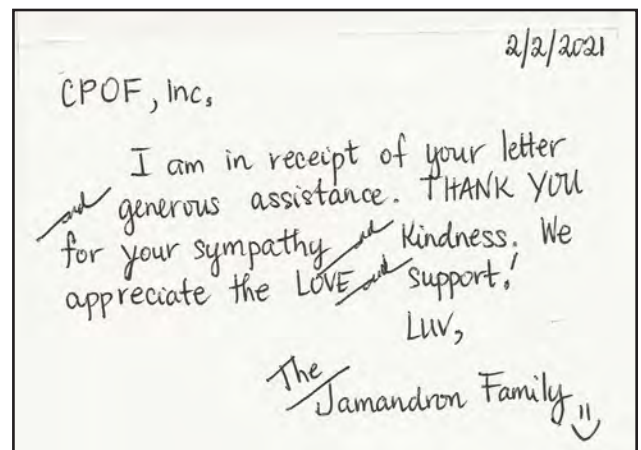 2/2/2021
CPOF, Inc,
I am in receipt of your letter
and generous assistance. THANK YOU
for your sympathy and Kindness. We
appreciate the LOVE and support!
Luv,
The
Jamandron Family